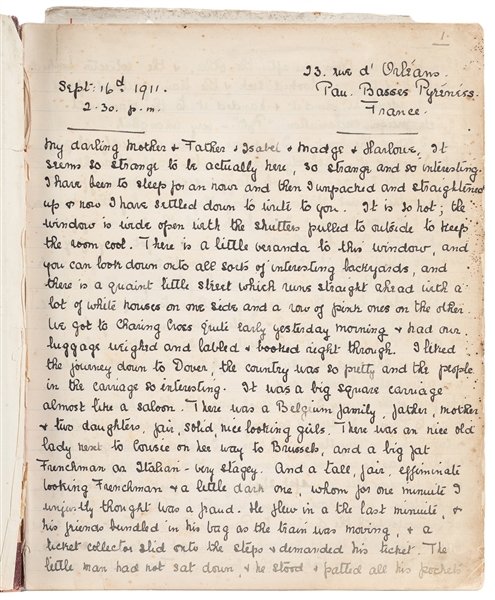 1.
23. rue d' Orléans.
Sept: 16d 1911.
Pau. Basses Pyrénées.
2.30. p.m.
France.
My darling Mother & Father & Isabel & Madge & Harlowe, It
seems so strange to be actually here, so strange and so interesting.
I have been to sleep for an hour and then I unpacked and straightened
up & now I have settled down to write to you. It is so hot; the
window is wide open with the shutters pulled to outside to keep
the room cool. There is a little veranda to this window, and
you can look down onto all sorts of interesting backyards, and
there is a quaint little street which runs straight ahead with a
lot of white houses on one side and a row of pink ones on the other.
We got to Charing Cross quite early yesterday morning & had our
luggage weighed and labled & booked right through. I liked
the journey down to Dover, the country was so pretty and the people
in the carriage so interesting. It was a big square carriage
almost like a saloon. There was a Belgium family, father, mother
& two daughters, fair, solid, nice looking girls. There was an nice old
lady next to Cousie on her way to Brussels, and a big fat
Frenchman or Italian - very stagey. And a tall, fair, effiminate
looking Frenchman & a little dark one, whom for one minuite I
unjustly thought was a fraud. He flew in a the last minuite, &
his friends bundled in his bag as the train was moving, & a
ticket collector slid onto the steps & demanded his ticket. The
little man had not sat down, & he stood & patted all his pockets